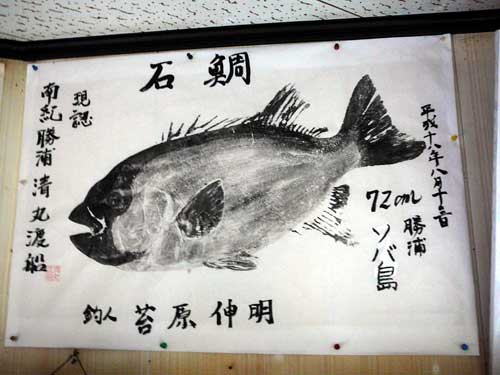 石鯛
平成十八年八月
72cm
勝浦
ソバ島
現認
南紀勝浦 清丸渡船
釣人 苔原伸明